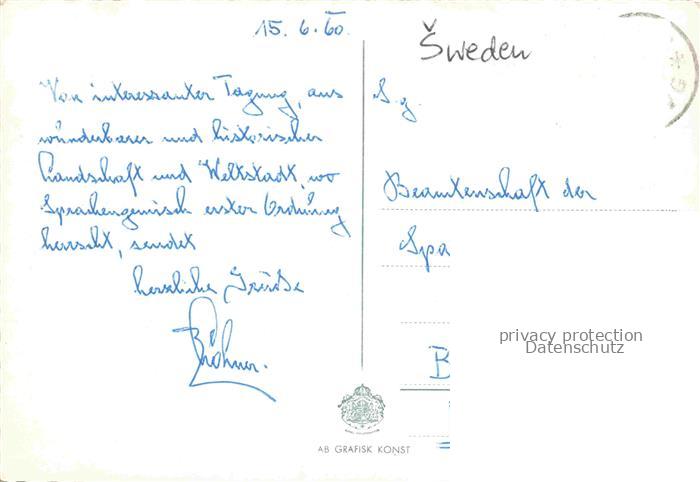 15. 6. 60.
Šweden
Von interessanter Tagung, aus
wunderbarer und historischer
Landschaft und Weltstadt, wo
Sprachengemisch erster Ordnung
herrscht, sendet
herzliche Grüße
S. g.
Beamtenschaft der
Spa
B
privacy protection
Datenschutz
AB GRAFISK KONST